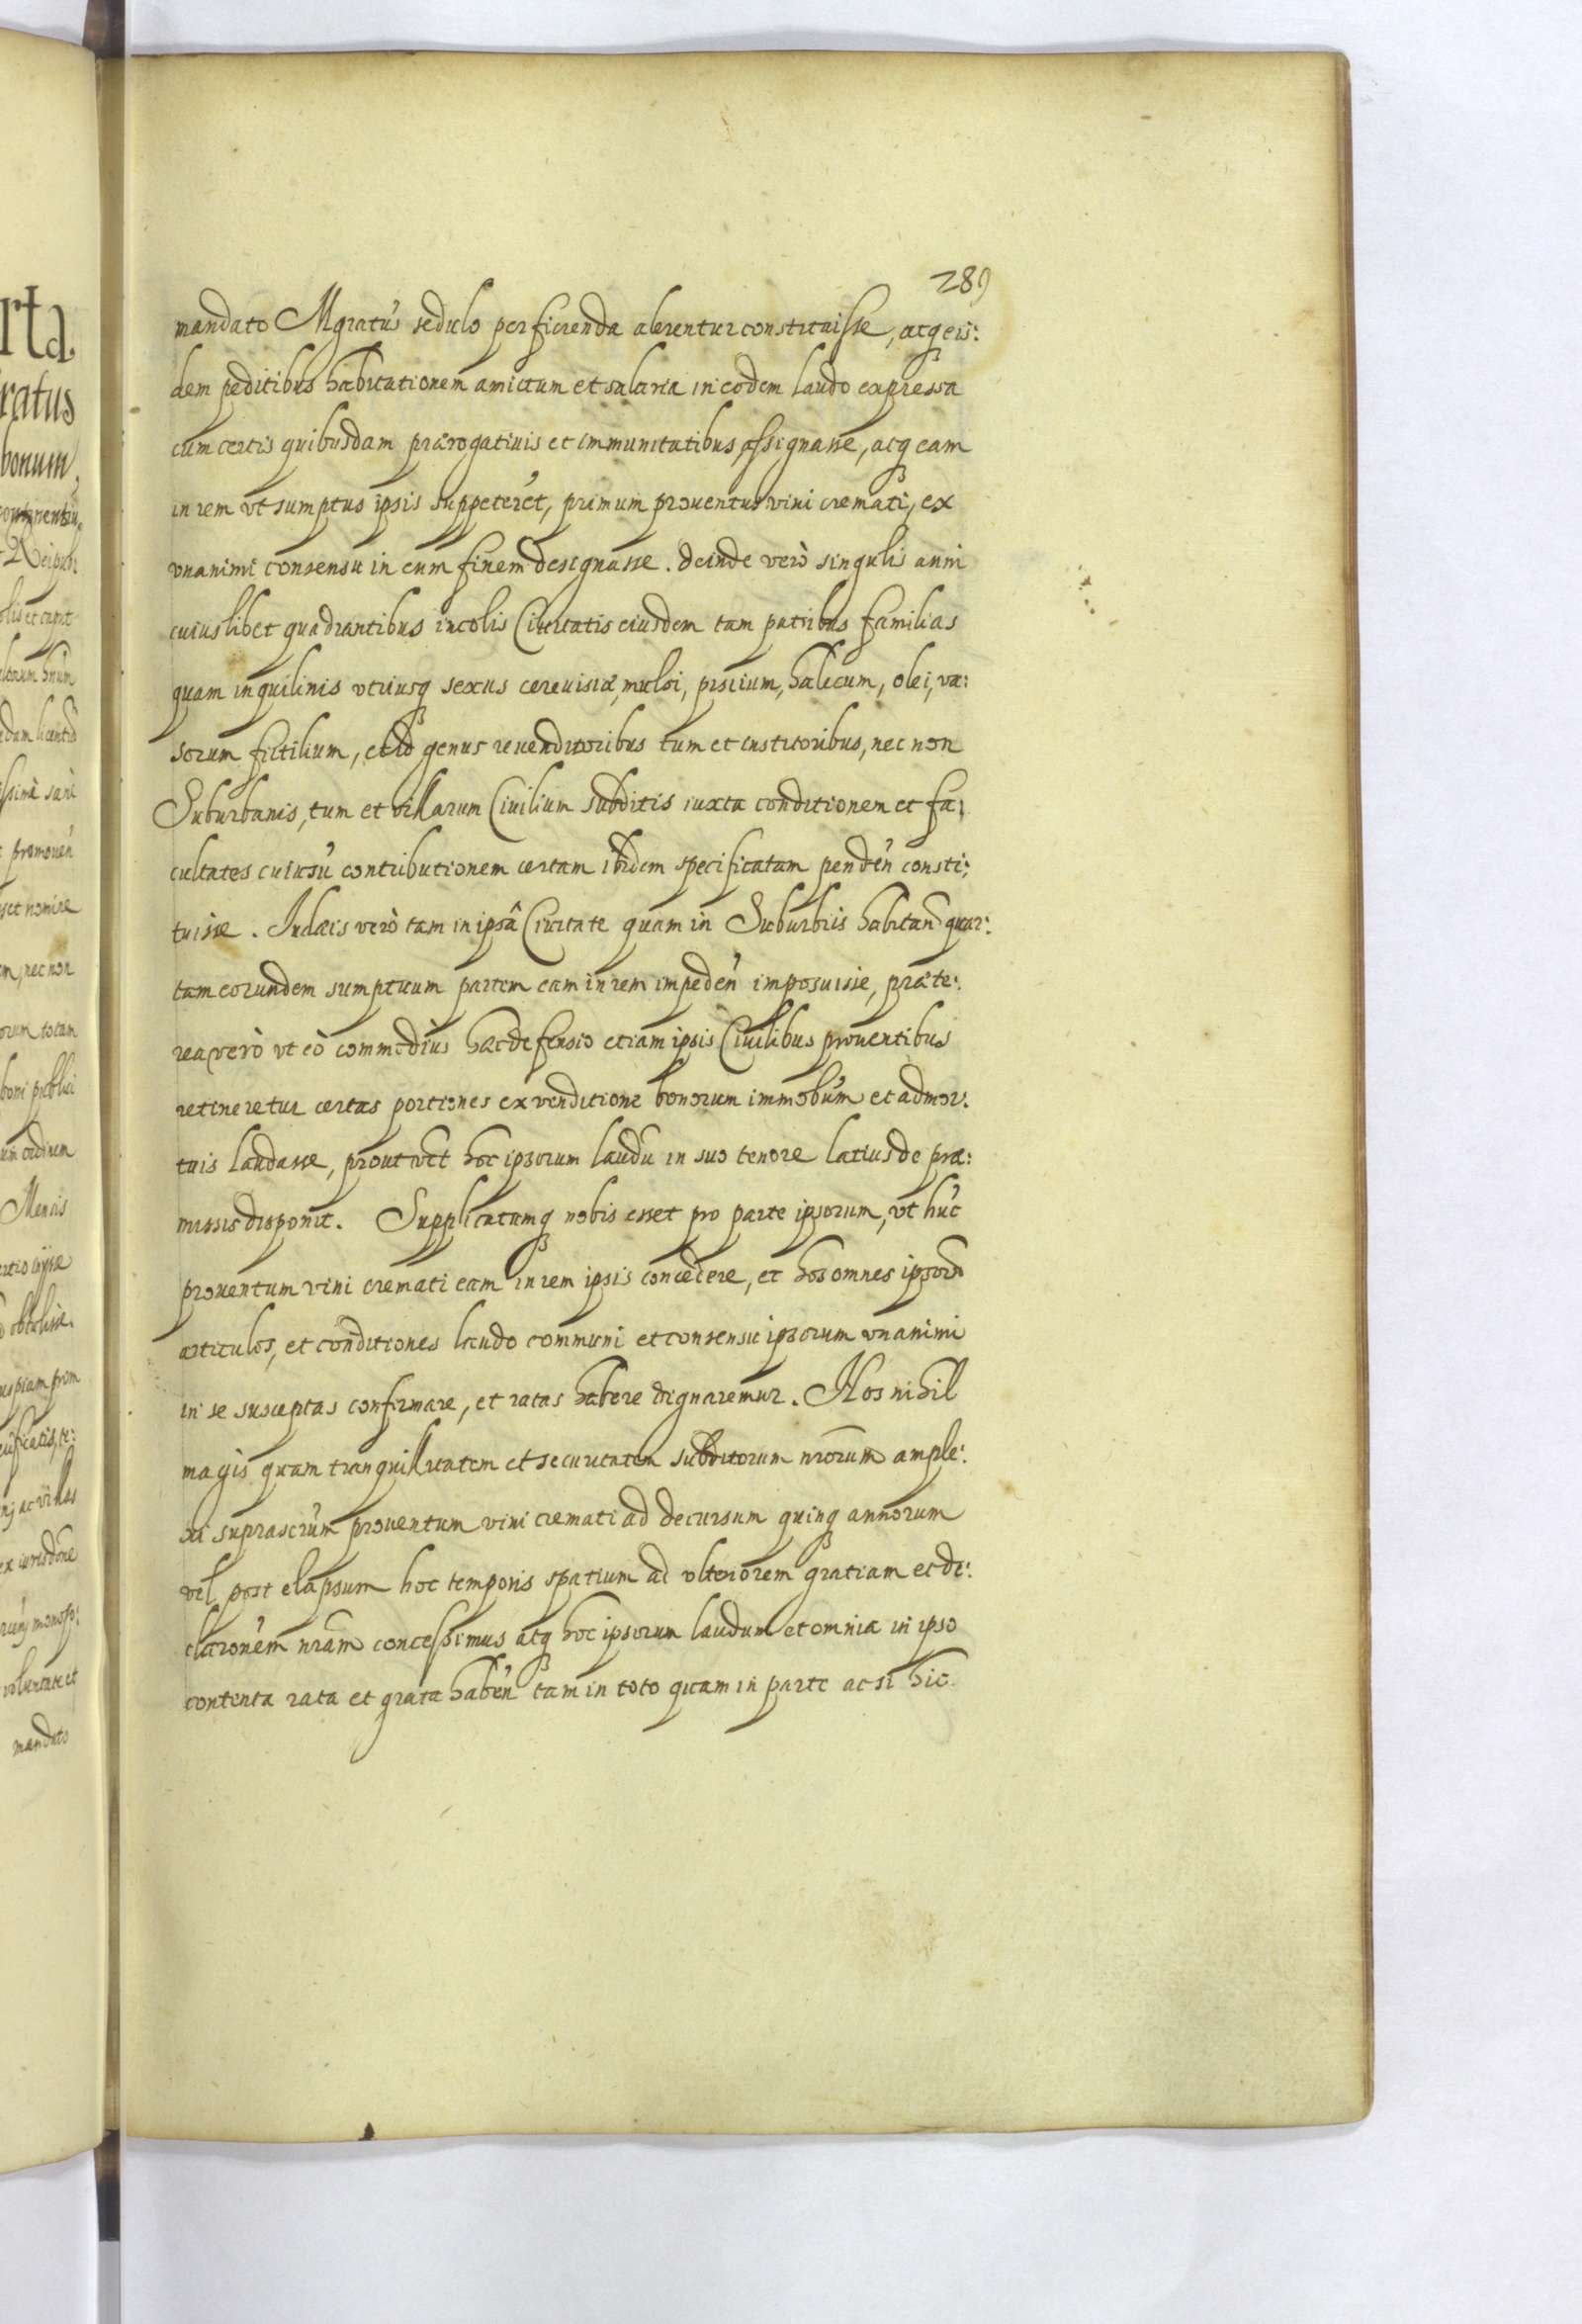 289
mandato Mgratus sedulo perficienda alerentur constituisse, atq eis:
dem peditibus habitationem amictum et salaria in eodem laudo expressa
cum certis quibusdam prærogatiuis et immunitatibus assignasse, atq eam
in rem vt sumptus ipsis suppeteret, primum prouentus vini cremati, ex
vnanimi consensu in eum finem designasse. deinde verò singulis anni
cuiuslibet quadrantibus incolis Ciuitatis eiusdem tam patribus familias
quam inquilinis vtriusq sexus cereuisiæ, mulsi, piscium, halecum, olei, va:
sorum fictilium, et id genus reuenditoribus tum et institoribus, nec non
Suburbanis, tum et villarum Ciuilium subditis iuxta conditionem et fa:
cultates cuiusu contributionem certam ibidem specificatam penden consti:
tuisse. Iudæis verò tam in ipsâ Ciuitate quam in Suburbiis habitan quar:
tam eorundem sumptuum partem eam in rem impeden imposuisse, præte:
rea verò vt eò commodiùs hæc defensio etiam ipsis Ciuilibus prouentibus
retineretur certas portiones ex venditione bonorum immobum et ad mor:
tuis laudasse, prout hoc ipsorum laudu in suo tenore latius de præ:
missis disponit. Supplicatumq nobis esset pro parte ipsorum, vt huc
prouentum vini cremati eam in rem ipsis concedere, et hos omnes ipsorum
articulos, et conditiones laudo communi et consensu ipsorum vnanimi
in se susceptas confirmare, et ratas habere dignaremur. Nos nihil
magis quam tranquillitatem et securitatem subditorum nrorum ample:
xi suprascrum prouentum vini cremati ad decursum quinq annorum
vel post elapsum hoc temporis spatium ad vlteriorem gratiam et de:
claronem nram concessimus atq hoc ipsorum laudum et omnia in ipso
contenta rata et grata haben tam in toto quam in parte ac si hic
rta
ratus
bonum,
olis et caput
dam licentia
promouen
set nomine
m, nec non
orum totam
boni publici
um ordinem
Mensis
obtulisse.
ex iurisdone
voluntate et
mandato